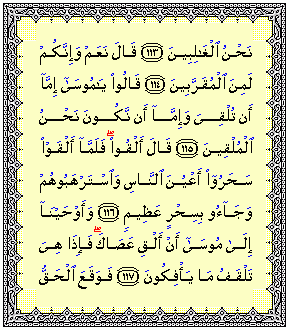 نَحْنُ ٱلْغَـٰلِبِينَ ﴿١١٣﴾ قَالَ نَعَمْ وَإِنَّكُمْ
لَمِنَ ٱلْمُقَرَّبِينَ ﴿١١٤﴾ قَالُوا۟ يَـٰمُوسَىٰٓ إِمَّآ
أَن تُلْقِىَ وَإِمَّآ أَن نَّكُونَ نَحْنُ
ٱلْمُلْقِينَ ﴿١١٥﴾ قَالَ أَلْقُوا۟ ۖ فَلَمَّآ أَلْقَوْا۟
سَحَرُوٓا۟ أَعْيُنَ ٱلنَّاسِ وَٱسْتَرْهَبُوهُمْ
وَجَآءُو بِسِحْرٍ عَظِيمٍ ﴿١١٦﴾ وَأَوْحَيْنَآ
إِلَىٰ مُوسَىٰٓ أَنْ أَلْقِ عَصَاكَ ۖ فَإِذَا هِىَ
تَلْقَفُ مَا يَأْفِكُونَ ﴿١١٧﴾ فَوَقَعَ ٱلْحَقُّ